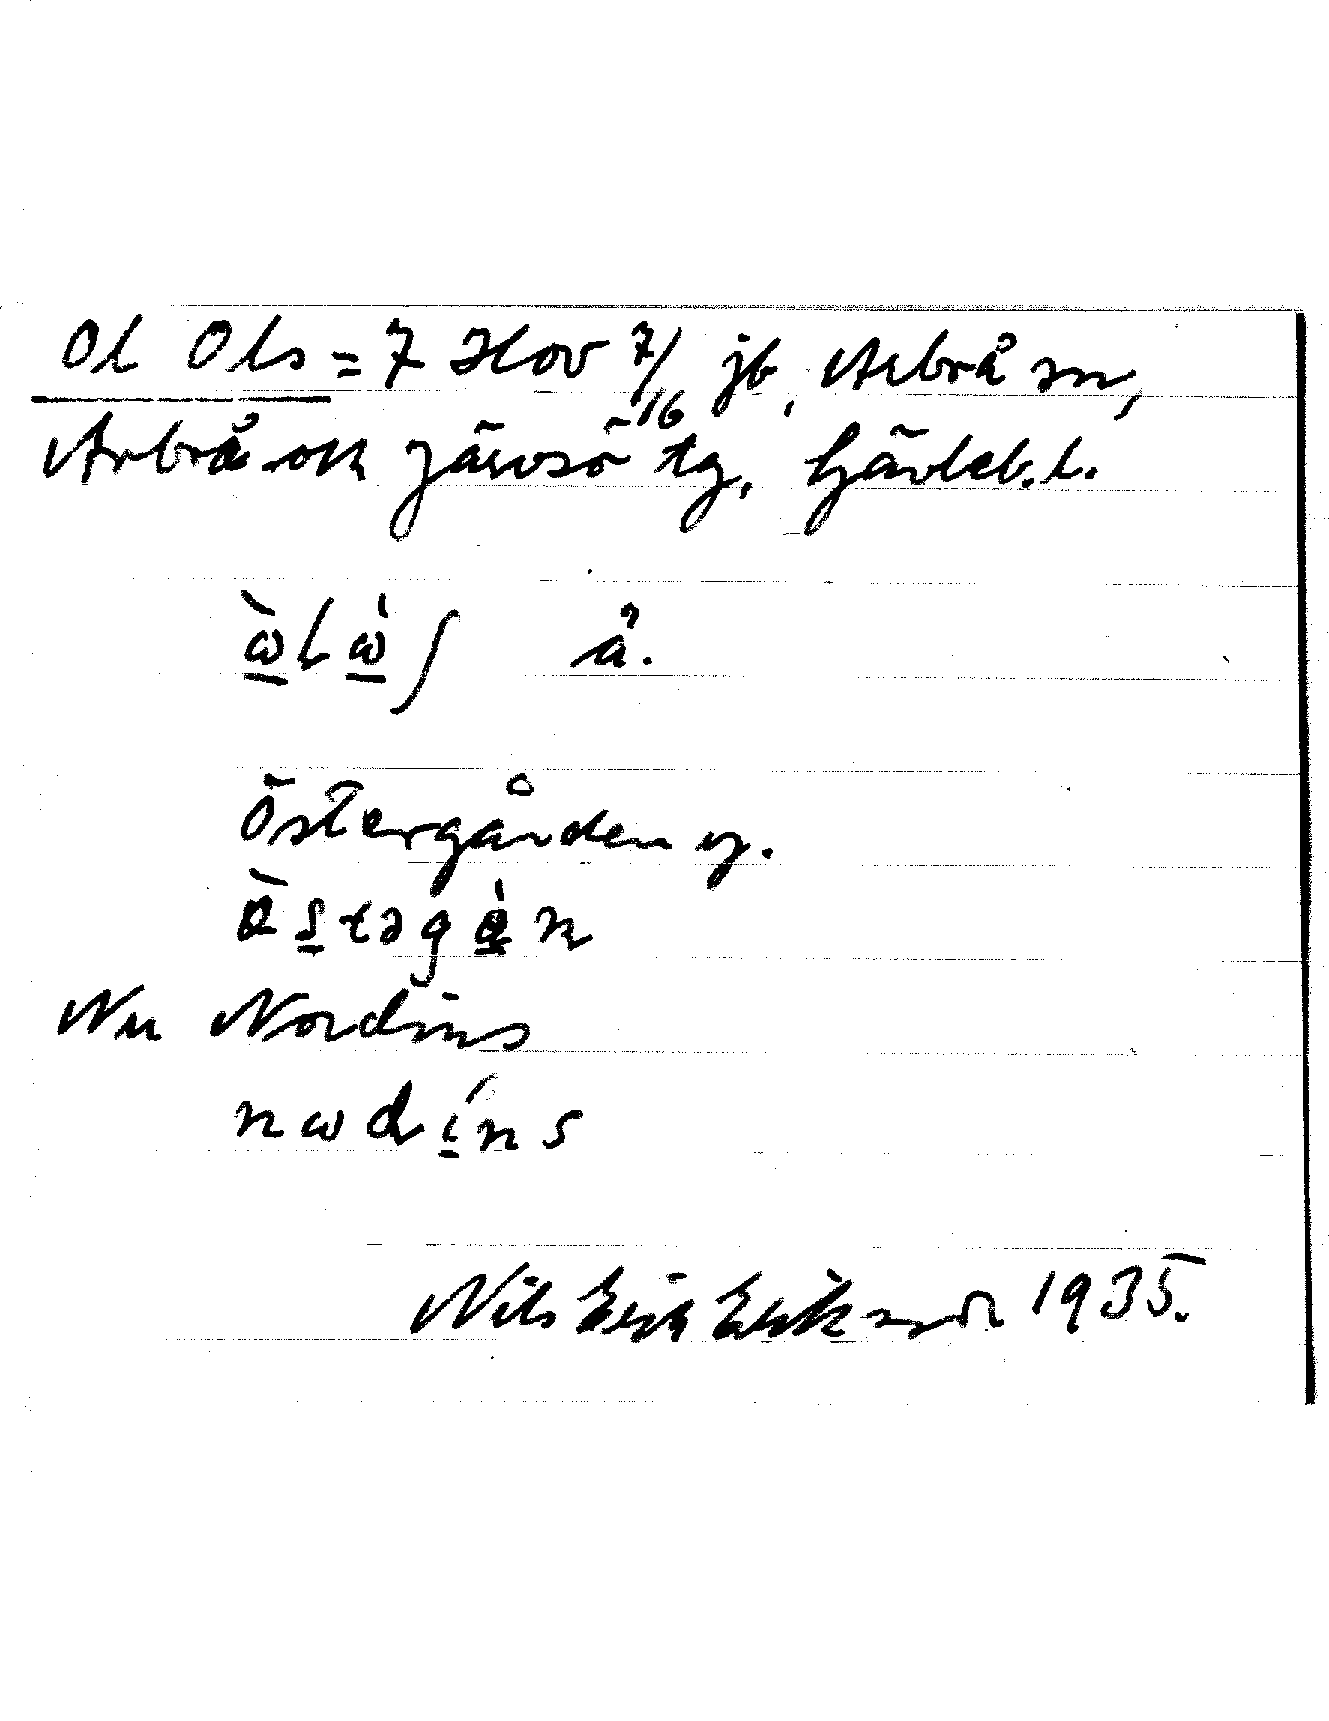 Ol Ols = 7 Hov 7/16 jb, Arbrå sn,
Arbrå och Järvsö tg, Gävleb. l.
ä.
Östergården y.
Nu Nordins
nωdíns
Nils Erik Eriksson 1935.